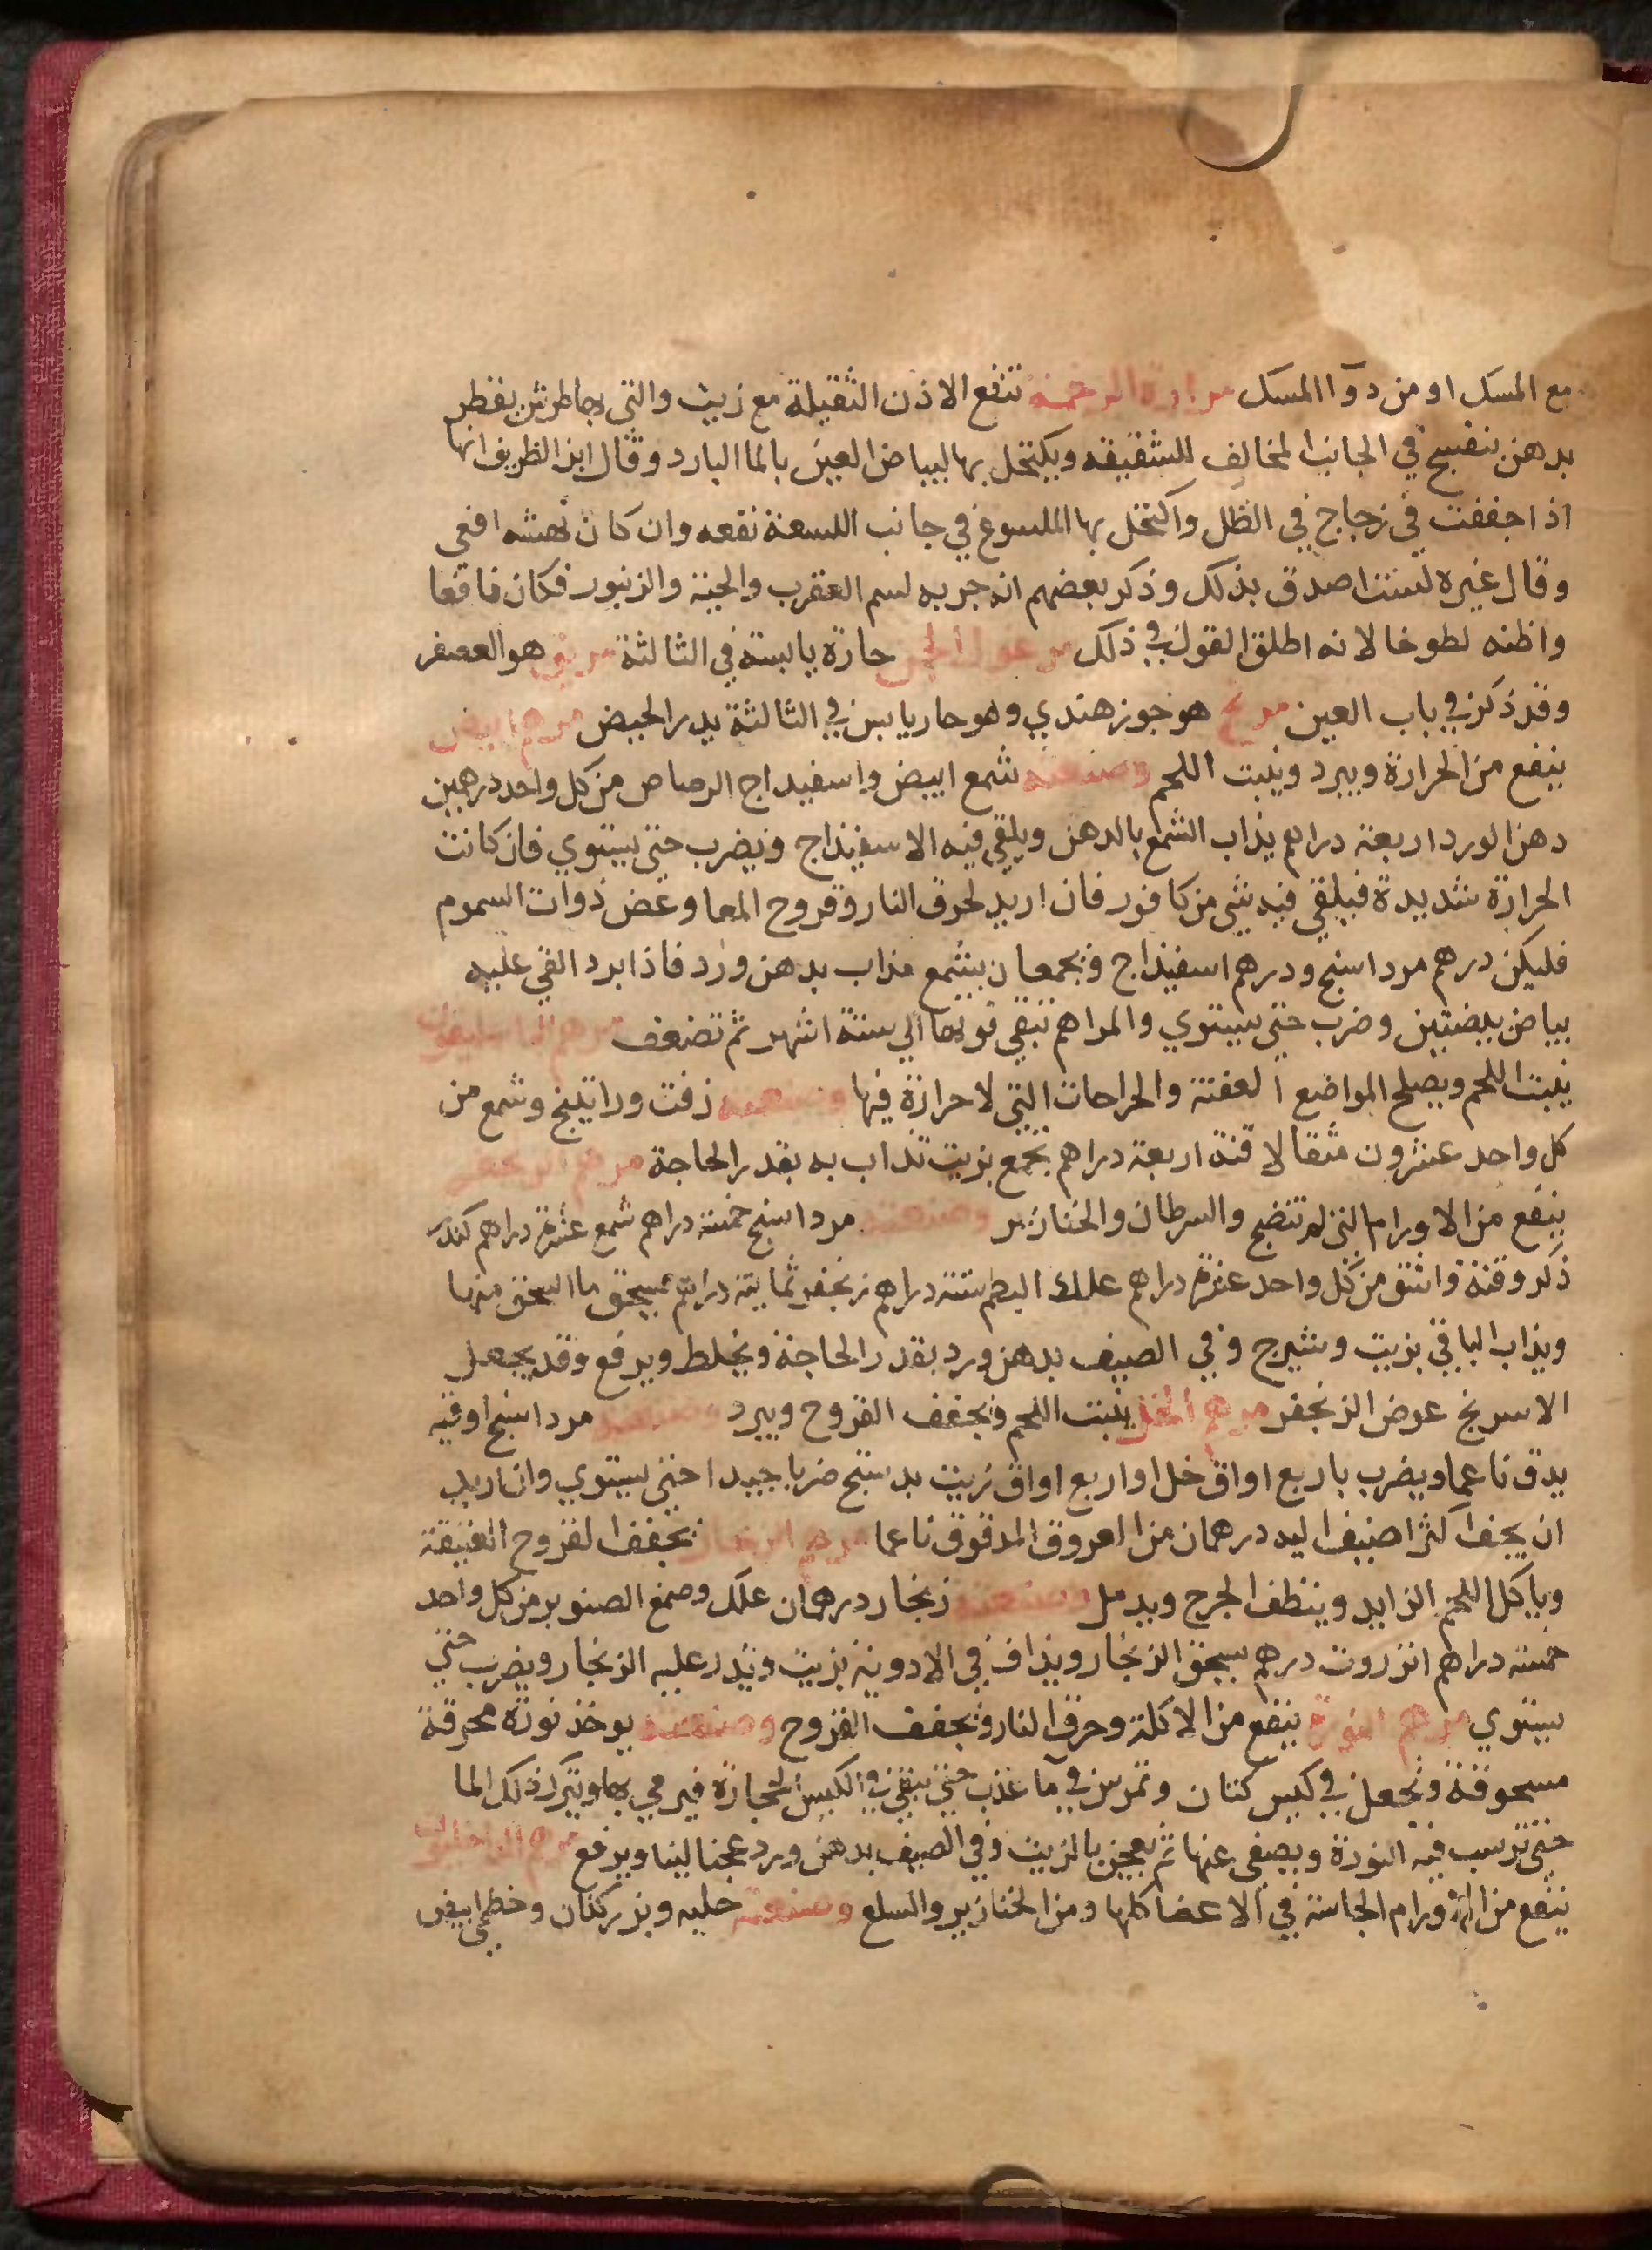 مع المسك او من دوآ المسك مرارة الرخمة تنفع الاذن الثقيلة مع زيت والتي بها طرش يقطر
بدهن بنفسج في الجانب المخالف للشقيقه ويكتحل بها لبياض العين بالما البارد وقال ابن الظريف انها
اذا جففت في زجاج في الظل واكتحل بها الملسوع في جانب اللسعة نفعه وان كان نهشه افعي
وقال غيره لست اصدق بذلك وذكر بعضهم انه جربه لسم العقرب والحية والزنبور فكان نافعا
واظنه لطوخا لانه اطلق القول في ذلك حارة يابسة في الثالثة مريق هو العصفر
وقد ذكر في باب العين هو جوز هندي وهو حار يابس في الثالثة يدر الحيض مرهم ابيض
ينفع من الحرارة ويبرد وينبت اللحم وصنعته شمع ابيض واسفيداج الرصاص من كل واحد درهمين
دهن الورد اربعة دراهم يذاب الشمع بالدهن ويلقي فيه الاسفيذاج ويضرب حتي يستوي فان كانت
الحرارة شديدة فيلقي فيه شي من كافور فان اريد لحرق النار وقروح المعا وعض ذوات السموم
فليكن درهم مرداسنج ودرهم اسفيذاج ويجمعان بشمع مذاب بدهن ورد فاذا برد القي عليه
بياض بيضتين وضرب حتي يستوي والمراهم تبقي قوتها الي ستة اشهر ثم تضعف مرهم الباسليقون
ينبت اللحم ويصلح المواضع العفنة والجراحات التي لا حرارة فيها وصنعته زفت وراتينج وشمع من
كل واحد عشرون مثقالا قنة اربعة دراهم يجمع بزيت تذاب به بقدر الحاجة مرهم الزنجفر
ينفع من الاورام التي لم تنضج والسرطان والخنازير وصنعته مرداسنج خمسة دراهم شمع عشرة دراهم كندر
ذكر وقنة واشق من كل واحد عشرة دراهم علك البطم ستة دراهم زنجفر ثمانية دراهم يسحق ما انسحق منها
ويذاب الباقي بزيت وشيرج وفي الصيف بدهن ورد بقدر الحاجة ويخلط ويرفع وقد يجعل
الاسرنج عوض الزنجفر مرهم الخل ينبت اللحم ويجفف القروح ويبرد وصنعته مرداسنج اوقية
يدق ناعما ويضرب باربع اواق خل او اربع اواق زيت بدستج ضربا جيدا حتي يستوي وان اريد
ان يجفف اكثر اضيف اليه درهمان من العروق المدقوق ناعما مرهم الزنجار يجفف القروح العتيقة
وياكل اللحم الزايد وينظف الجرح ويدمل وصنعته زنجار درهمان علك وصمغ الصنوبر من كل واحد
خمسة دراهم انزروت درهم يسحق الزنجار ويذاف في الادوية بزيت ويذر عليه الزنجار ويضرب حتي
يستوي مرهم النورة ينفع من الاكلة وحرق النار ويجفف القروح وصنعته يوخذ نورة محرقة
مسحوقة وتجعل في كيس كتان وتمرس في ما عذب حتي يبقي في الكيس الحجارة فيرمي بها ويترك ذلك الما
حتي ترسب فيه النورة ويصفي عنها ثم يعجن بالزيت وفي الصيف بدهن ورد عجنا لينا ويرفع مرهم الداخليون
ينفع من الاورام الجاسية في الاعضا كلها ومن الخنازير والسلع وصنعته حلبه وبزر كتان وخطمي ابيض